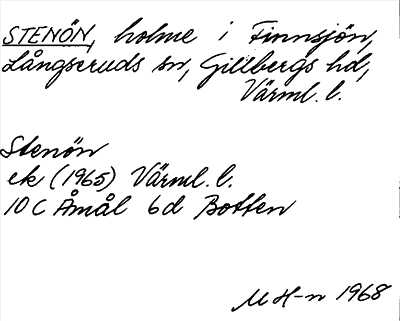 STENÖN, holme i Finnsjön,
Långseruds sn, Gillbergs hd,
Värml. l.
Stenön
ek (1965) Värml. l.
10 C Åmål 6d Botten
M H-n 1968